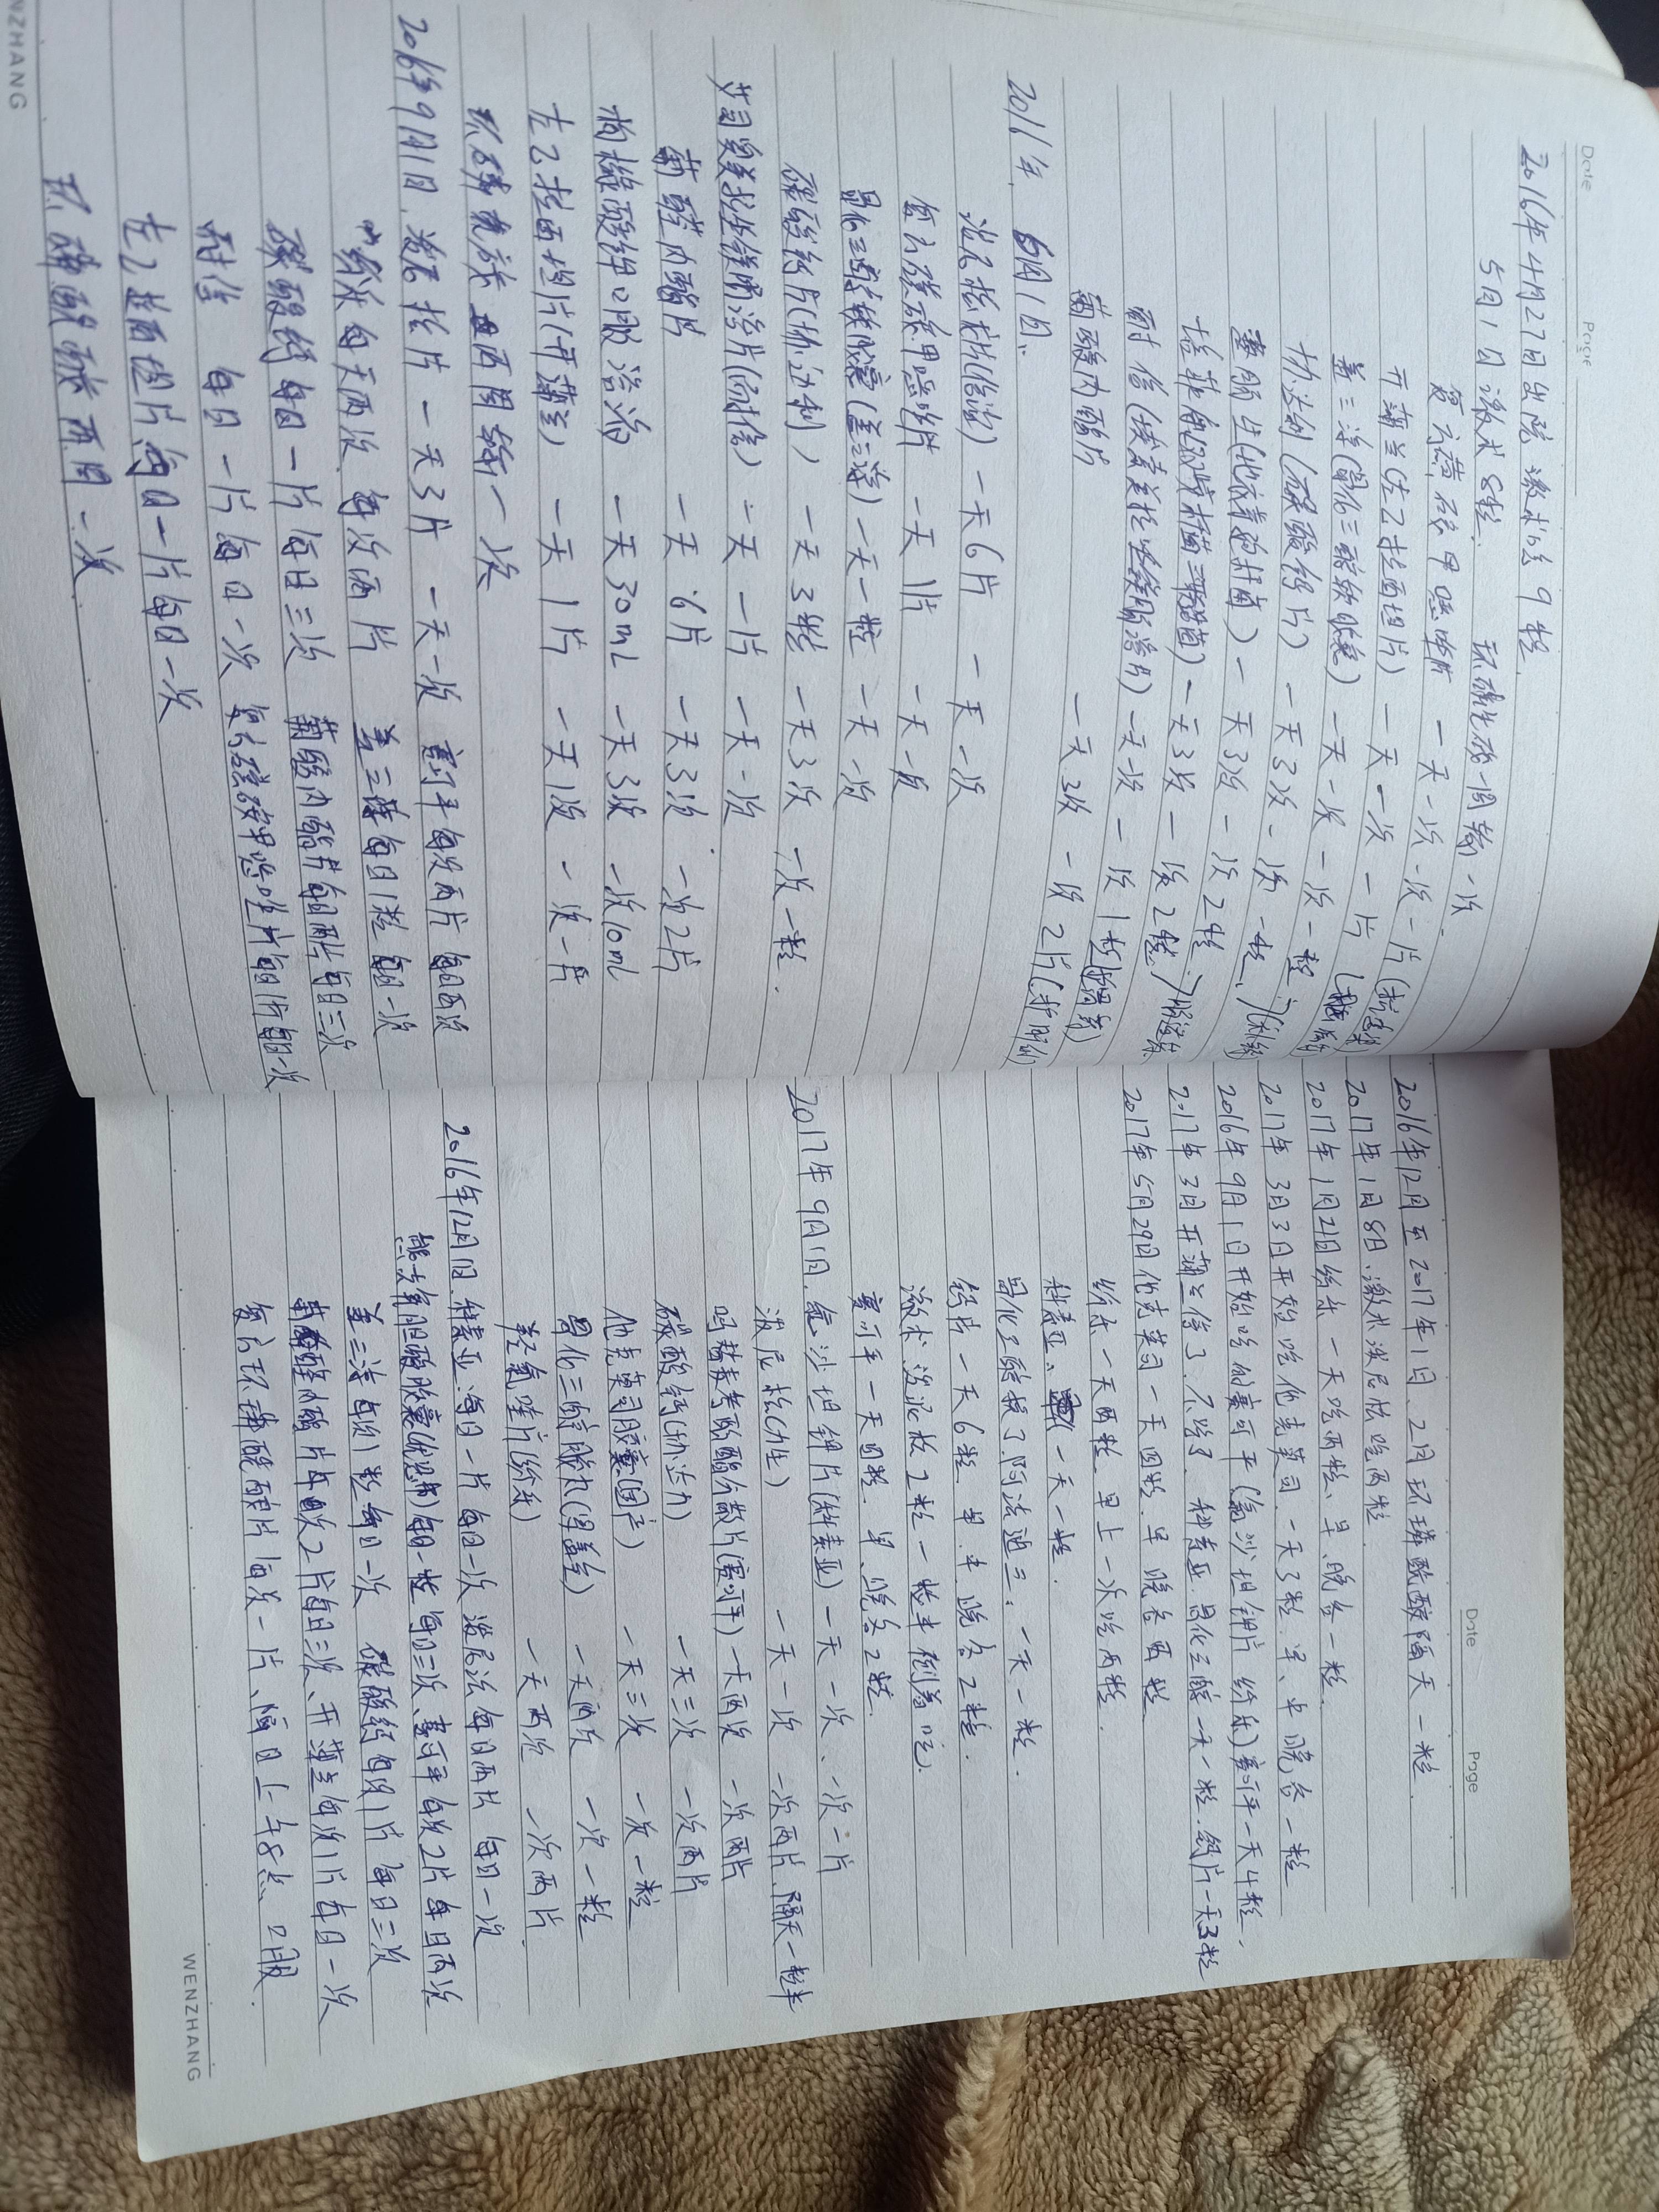 Date Page
2016年4月27日出院 激素吃9粒.
5月1日激素8粒. 环磷先放一周输一次.
复方磺胺甲噁唑片 一天一次 一次一片(抗感染)
开浦兰(左乙拉西坦片) 一天一次 一片
盖三淳(骨化三醇软胶囊) 一天一次 一次一粒
协达利(碳酸钙片) 一天3次 一次一粒
一天3次 一次2粒
一天3次 一次2粒
耐信(埃索美拉唑镁肠溶片) 一天一次 一次1粒(胃药)
葡醛内酯片 一天3次 一次2片
2016年6月1日:
泼尼松片 一天6片 一天一次
复方磺胺甲噁唑片 一天1片 一天一次
骨化三醇软胶囊(盖三淳) 一天一粒 一天一次
碳酸钙片(协达利) 一天3粒 一天3次 一次一粒.
埃索美拉唑镁肠溶片(耐信) 一天一片 一天一次
葡醛内酯片 一天6片 一天3次 一次2片
枸橼酸钾口服溶液 一天30mL 一天3次 一次10mL
左乙拉西坦片(开浦兰) 一天1片 一天1次 一次一片
环磷 两周输一次
2016年9月1日. 泼尼松片 一天3片 一天一次 赛可平每次两片 每日两次
纷乐每天两次 每次两片 盖三淳每日1粒 每日一次
碳酸钙每日一片每日三次 葡醛内酯片 每日三次
耐信 每日一片每日一次 复方磺胺甲噁唑片每日1片每日一次
左乙拉西坦片每日一片每日一次
环磷酰胺两周一次
WENZHANG
Date Page
2016年12月至2017年1日、2月环磷酰胺隔天一粒.
2017年1月8日、激素泼尼松吃两粒
2017年1月21日纷乐 一天吃两粒、早、晚各一粒.
2017年3月3日开始吃他克莫司. 一天3粒.早、中、晚各一粒
2016年9月1日开始吃的赛可平(氯沙坦钾片 纷乐)赛可平一天4粒、
2017年3月开浦兰停了.不吃了. 科素亚.骨化三醇一天一粒.钙片一天3粒
2017年5月29日他克莫司 一天四粒.早 晚各两粒
纷乐 一天两粒.早上一次吃两粒.
科素亚: 一天一粒.
骨化三醇换了.阿法迪三. 一天一粒.
钙片 一天6粒. 早.中 晚各2粒.
激素.泼尼松2粒一粒半倒着吃).
赛可平一天四粒.早.晚各2粒.
2017年9月1日.氯沙坦钾片(科素亚) 一天一次、一次一片
泼尼松(力生) 一天一次 一次两片、隔天一粒半
吗替麦考酚酯分散片(赛可平) 一天两次 一次两片
碳酸钙(协达力) 一天三次 一次两片
他克莫司胶囊(国产) 一天三次 一次一粒
骨化三醇胶丸(罗盖全) 一天两次 一次一粒
羟氯喹片(纷乐) 一天两次 一次两片
2016年12月1日.科素亚.每日一片每日一次 泼尼松每日两片 每日一次
熊去氧胆酸胶囊(优思弗)每日一粒每日三次、赛可平每次2片每日两次
盖三淳每次1粒每日一次 碳酸钙每次1片每日三次
葡醛内酯片每次2片每日三次、开蒲兰每次1片每日一次
复方环磷酰胺片每次一片、隔日上午8点.口服.
WENZHANG